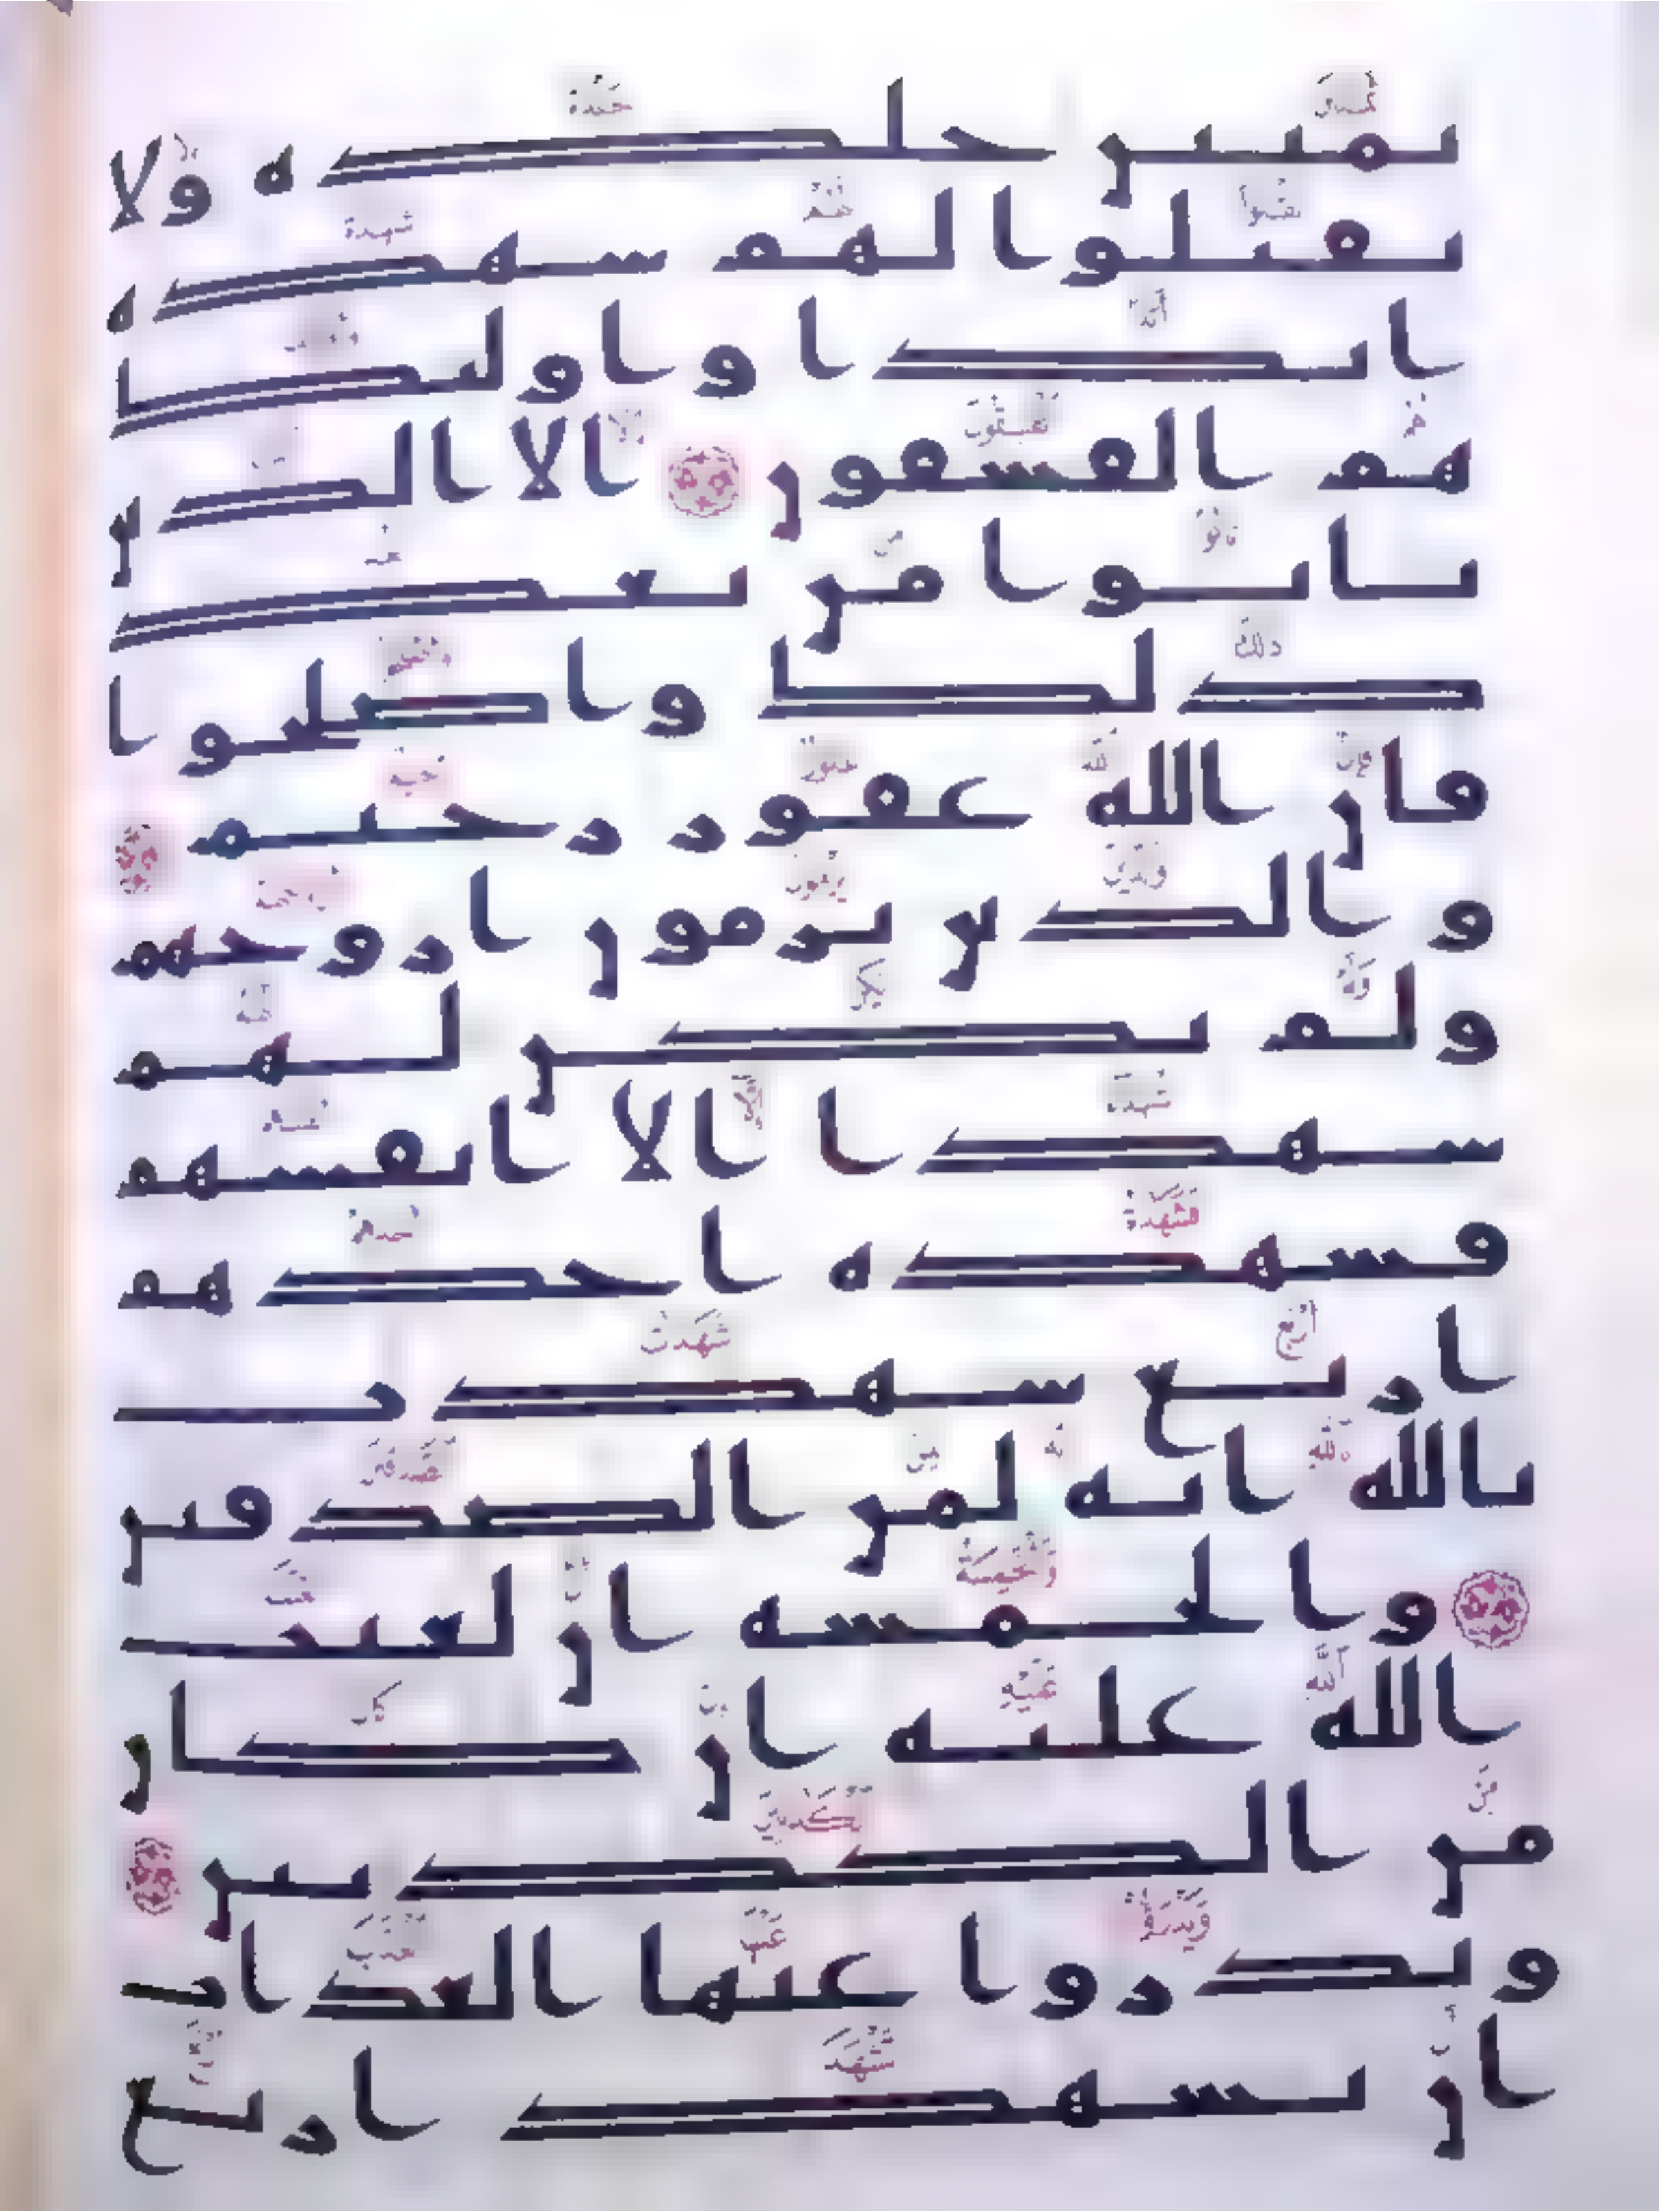 ثمنين جلدة ولا
تقبلوا لهم شهدة
ابدا واولئك
هم الفسقون الا الذين
تابوا من بعد
ذلك واصلحوا
فان الله غفور رحيم
والذين يرمون ازوجهم
ولم يكن لهم
شهدا الا انفسهم
فشهدة احدهم
اربع شهدت
بالله انه لمن الصدقين
والخمسة ان لعنت
الله عليه ان كان
من الكذبين
ويدروا عنها العذاب
ان تشهد اربع